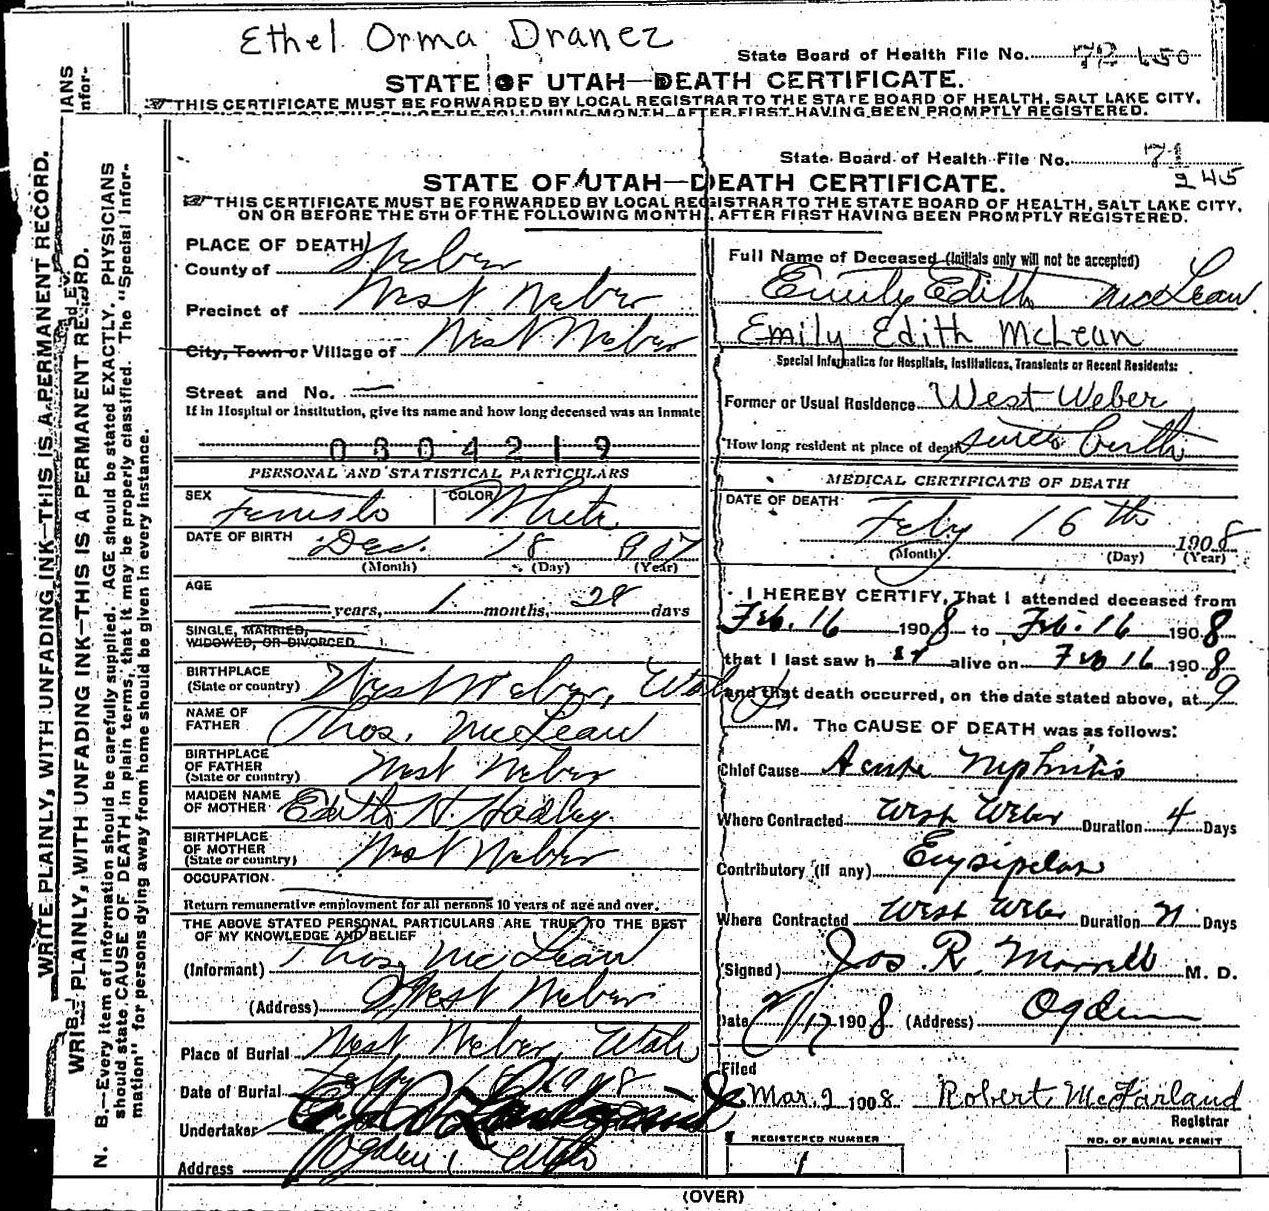 Ethel Orma Draner
State Board of Health File No. 72 650
STATE OF UTAH—DEATH CERTIFICATE.
THIS CERTIFICATE MUST BE FORWARDED BY LOCAL REGISTRAR TO THE STATE BOARD OF HEALTH, SALT LAKE CITY,
FOLLOWING MONTH, AFTER FIRST HAVING BEEN PROMPTLY REGISTERED.
State Board of Health File No. 71
245
STATE OF UTAH—DEATH CERTIFICATE.
THIS CERTIFICATE MUST BE FORWARDED BY LOCAL REGISTRAR TO THE STATE BOARD OF HEALTH, SALT LAKE CITY,
ON OR BEFORE THE 5TH OF THE FOLLOWING MONTH, AFTER FIRST HAVING BEEN PROMPTLY REGISTERED.
PLACE OF DEATH
County of Weber
Precinct of West Weber
City, Town or Village of West Weber
Street and No. —
If in Hospital or Institution, give its name and how long deceased was an inmate
0804219
PERSONAL AND STATISTICAL PARTICULARS
SEX Female COLOR White
DATE OF BIRTH Dec. 18 1907
(Month) (Day) (Year)
AGE
years, 1 months, 28 days
SINGLE, MARRIED,
WIDOWED, OR DIVORCED
BIRTHPLACE
(State or country) West Weber, Utah
NAME OF
FATHER Thos. McLean
BIRTHPLACE
OF FATHER West Weber
(State or country)
MAIDEN NAME
OF MOTHER Edith H. Hadley
BIRTHPLACE
OF MOTHER West Weber
(State or country)
OCCUPATION
Return remunerative employment for all persons 10 years of age and over.
THE ABOVE STATED PERSONAL PARTICULARS ARE TRUE TO THE BEST
OF MY KNOWLEDGE AND BELIEF
(Informant) Thos. McLean
(Address) West Weber
Place of Burial West Weber, Utah
Date of Burial
Undertaker
Address Ogden, Utah
Full Name of Deceased (Initials only will not be accepted)
Emily Edith McLean
Emily Edith McLean
Special Information for Hospitals, Institutions, Transients or Recent Residents:
Former or Usual Residence West Weber
How long resident at place of death since birth
MEDICAL CERTIFICATE OF DEATH
DATE OF DEATH
Feby 16th 1908
(Month) (Day) (Year)
I HEREBY CERTIFY, That I attended deceased from
Feb. 16 1908 to Feb. 16 1908
that I last saw her alive on Feb 16 1908
and that death occurred, on the date stated above, at 9
M. The CAUSE OF DEATH was as follows:
Chief Cause Acute Nephritis
Where Contracted West Weber Duration 4 Days
Contributory (If any) Erysipelas
Where Contracted West Weber Duration Days
(Signed) Jos. R. Morrell M. D.
Date 2/17 1908 (Address) Ogden
Filed
Mar. 2 1908 Robert McFarland
Registrar
REGISTERED NUMBER
1
NO. OF BURIAL PERMIT
(OVER)
WRITE PLAINLY, WITH UNFADING INK—THIS IS A PERMANENT RECORD.
PLAINLY, WITH UNFADING INK—THIS IS A PERMANENT RECORD.
N. B.—Every item of information should be carefully supplied. AGE should be stated EXACTLY. PHYSICIANS
should state CAUSE OF DEATH in plain terms, that it may be properly classified. The "Special Infor-
mation" for persons dying away from home should be given in every instance.